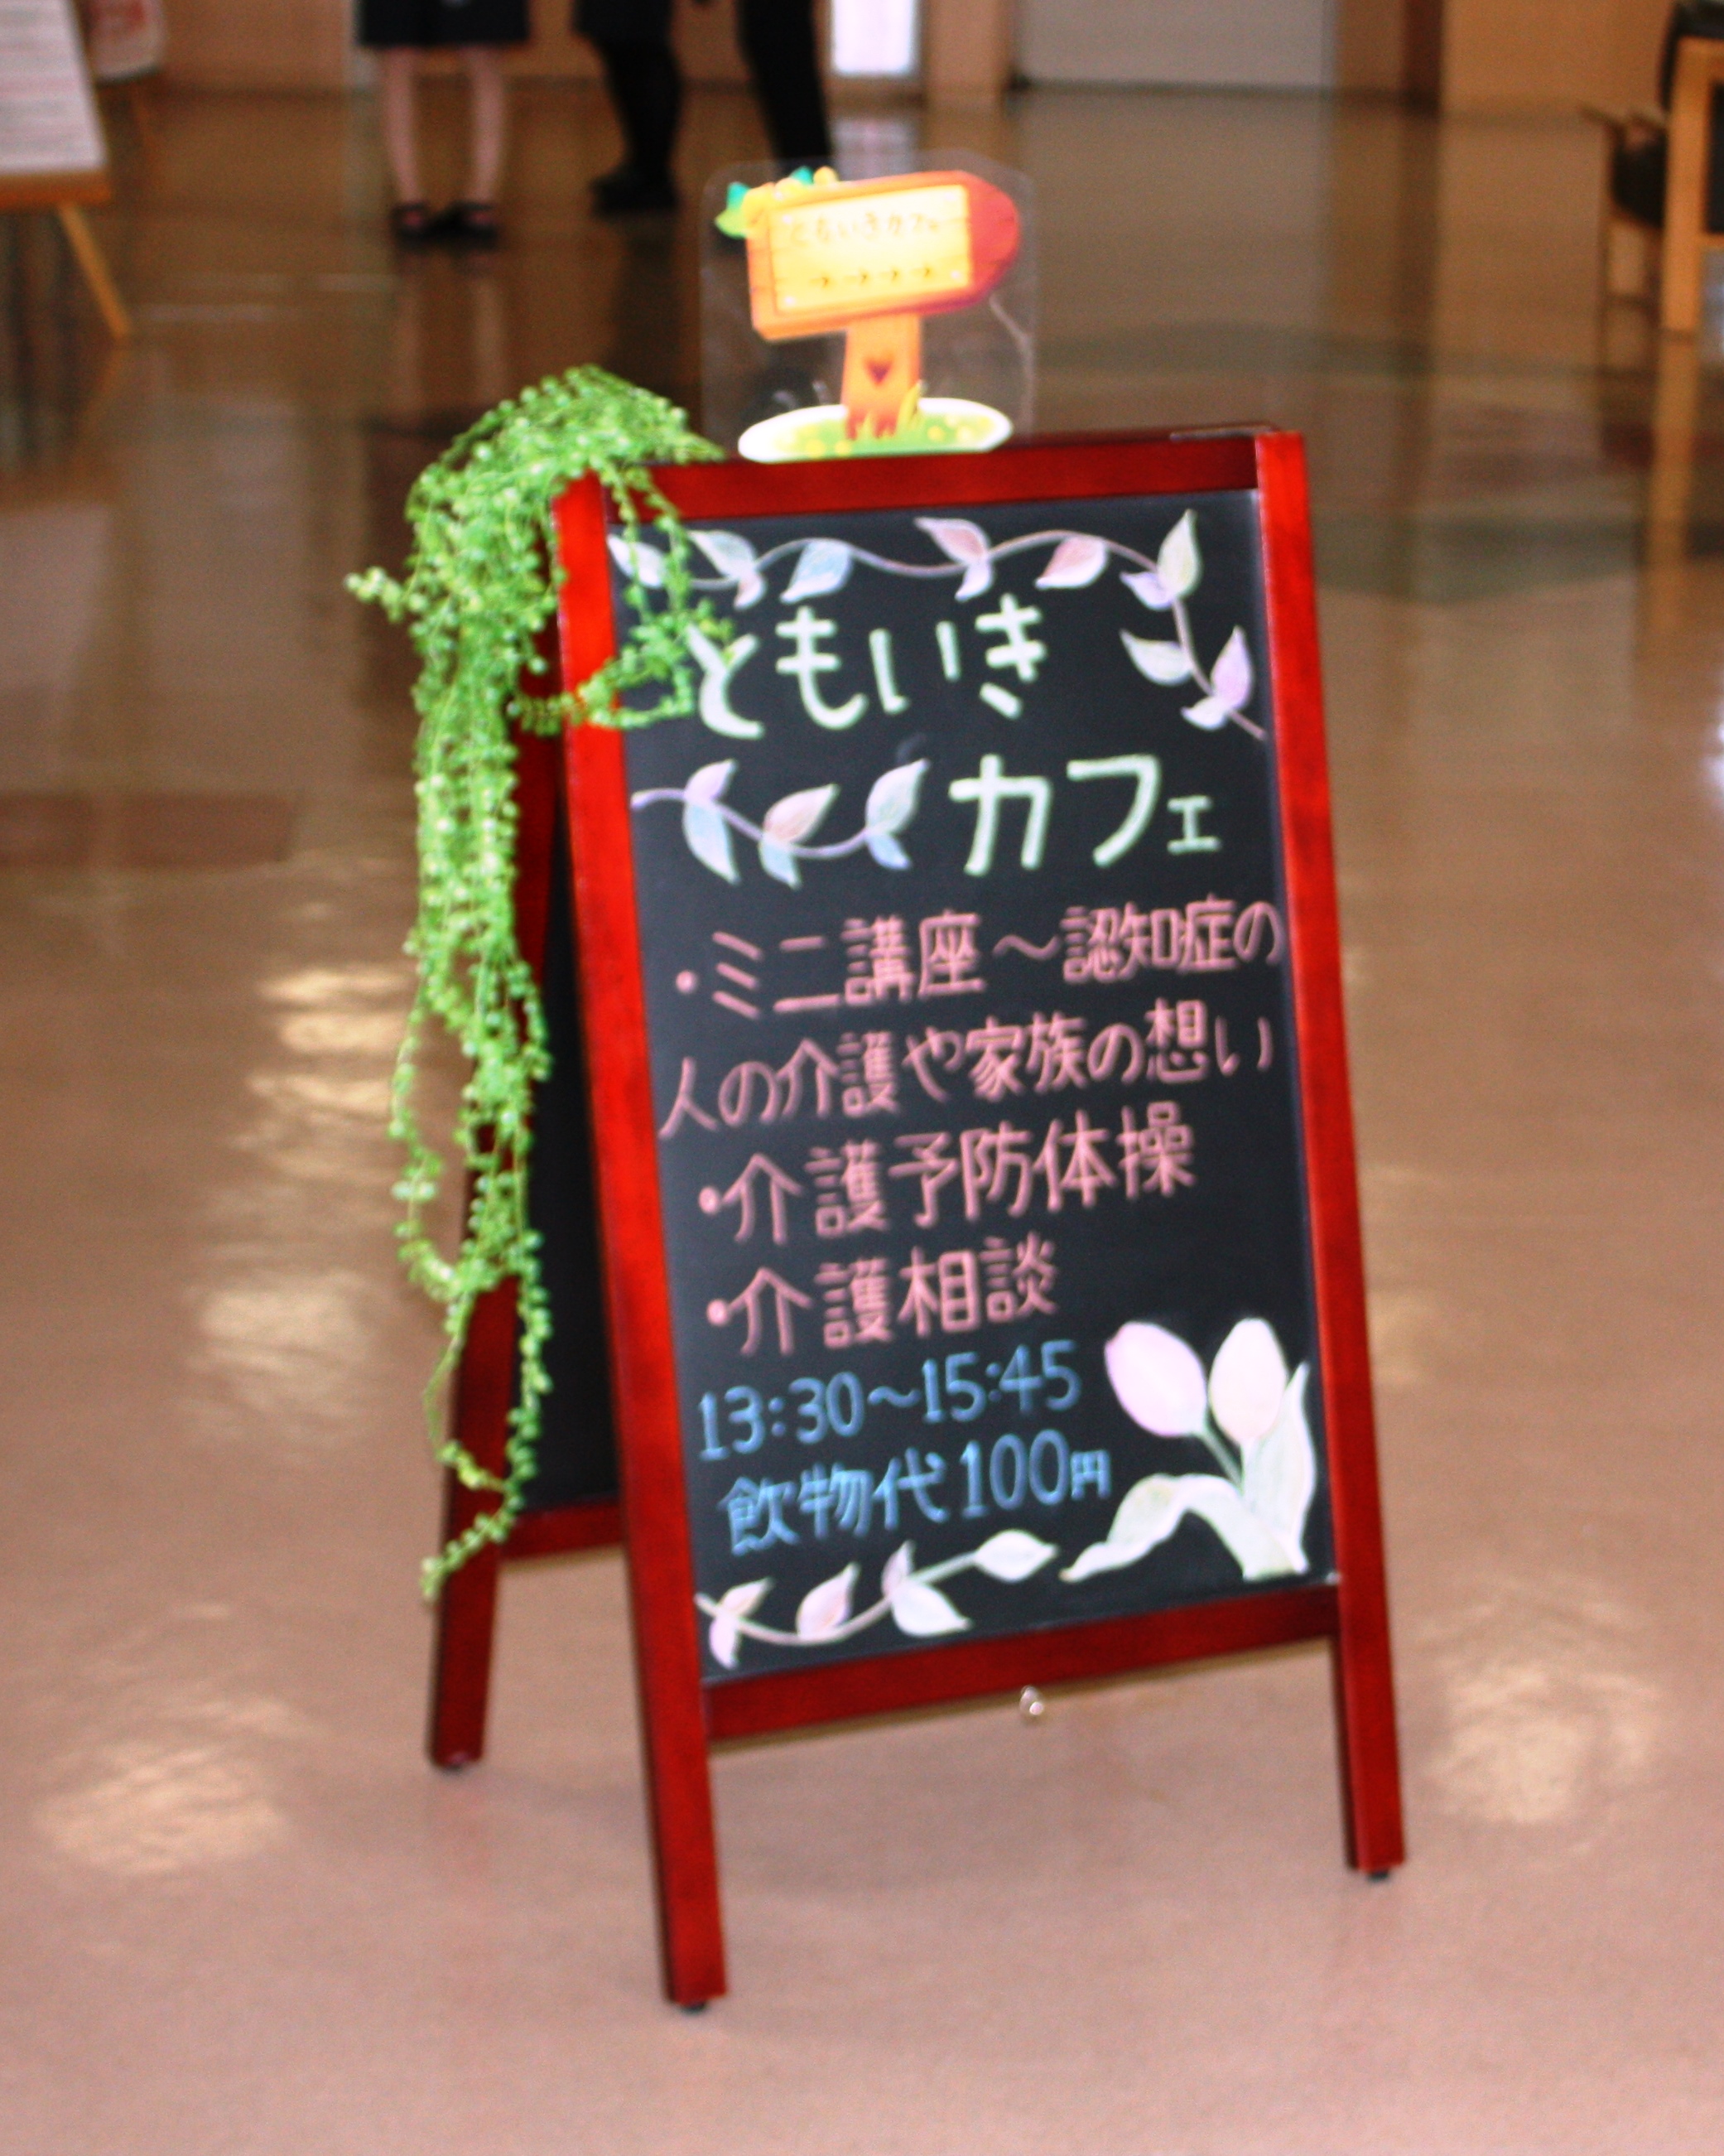 ともいきカフェ
→→→→
ともいき
カフェ
・ミニ講座～認知症の
人の介護や家族の想い
・介護予防体操
・介護相談
13:30～15:45
飲物代100円